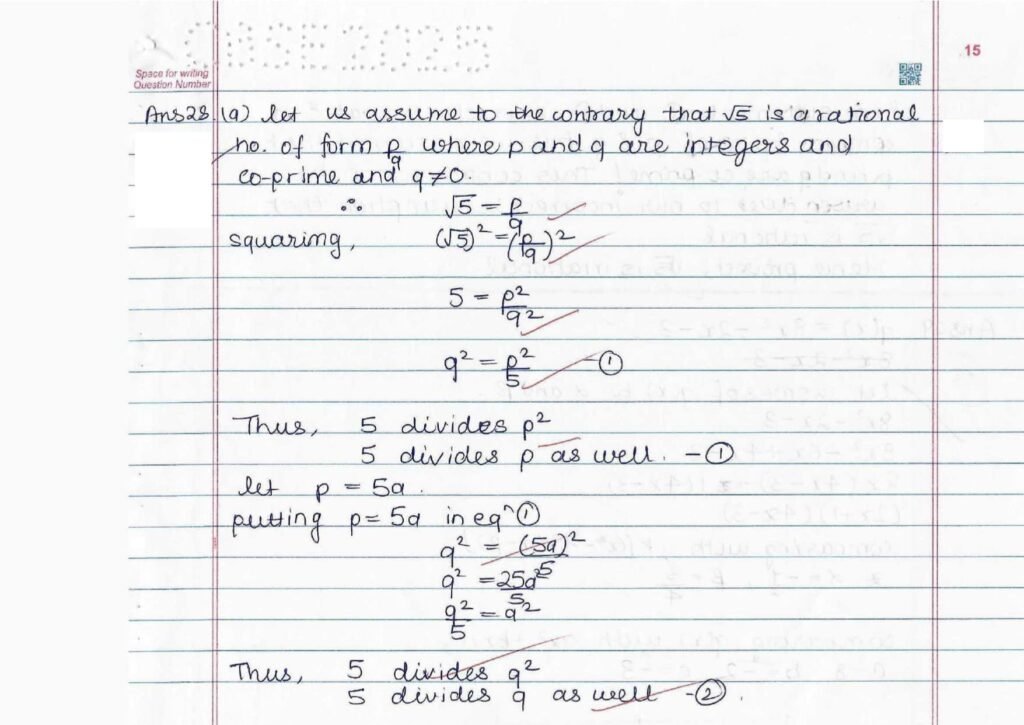 CBSE 2025
15
Space for writing
Question Number
Ans28. (a) let us assume to the contrary that √5 is a rational
no. of form p/q where p and q are integers and
co-prime and q≠0.
∴ √5 = p/q
squaring, (√5)² = (p/q)²
5 = p²/q²
q² = p²/5 -①
Thus, 5 divides p²
5 divides p as well. -①
let p = 5a.
putting p= 5a in eqⁿ ①
q² = (5a)²/5
q² = 25a²/5
q²/5 = a²
Thus, 5 divides q²
5 divides q as well -②.